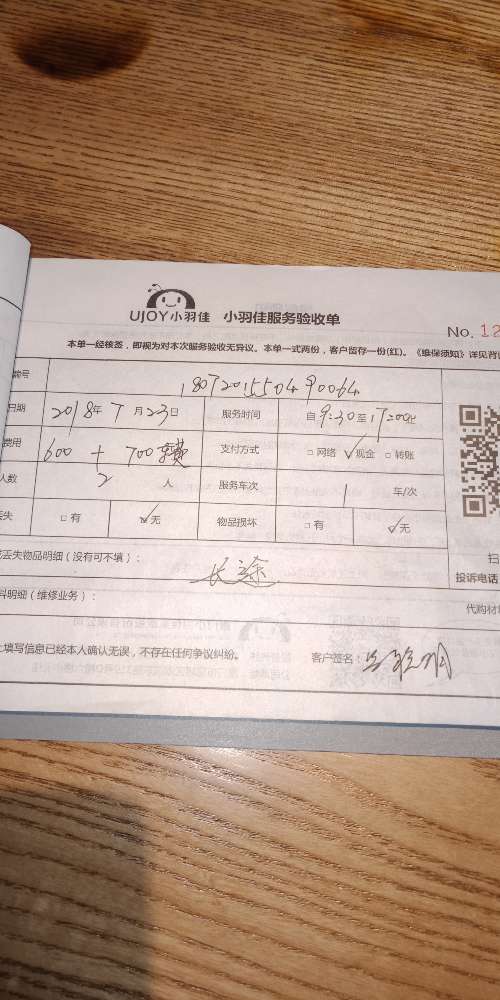 UJOY小羽佳 小羽佳服务验收单
No. 12
本单一经核签，即视为对本次服务验收无异议。本单一式两份，客户留存一份(红)。《维保须知》详见背
编号 180720155049 0064
日期 2018年7月23日 服务时间 自9:30至17:00止
费用 600 + 700 支付方式 □网络 ☑现金 □转账
人数 2 人 服务车次 1 车/次
丢失 □有 ☑无 物品损坏 □有 ☑无
丢失物品明细（没有可不填）： 长途
扫
投诉电话
料明细（维修业务）：
代购材
上填写信息已经本人确认无误，不存在任何争议纠纷。 客户签名：